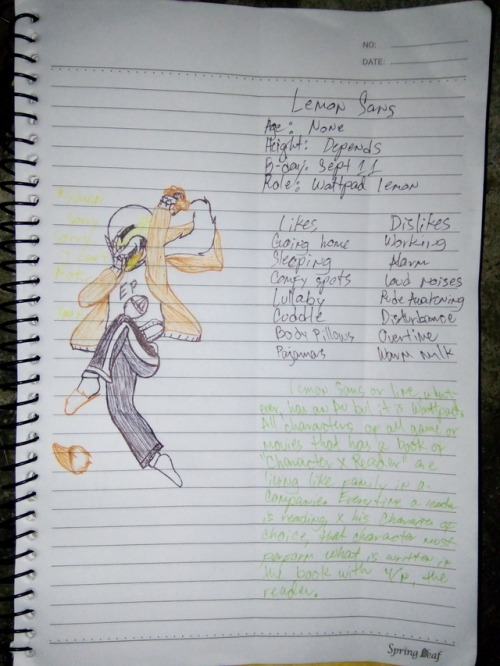 NO:
DATE:
Lemon Sans
Age: None
Height: Depends
B-day: Sept 11
Role: Wattpad lemon
Likes Dislikes
Going home Working
Sleeping Alarm
Comfy spots Loud Noises
Lullaby Rude Awakening
Cuddle Disturbance
Body Pillows Overtime
Pajamas Warm milk
Lemon Sans or lime, what-
ever, has an AU but it is Wattpad.
All characters of all game or
movies that has a book of
"Character X Reader" are
living like family in a
Companie. Everytime a reader
is reading x his character of
choice, that character must
perform what is written in
the book with Y/N, the
reader.
Sorry
Sorry
Spring Leaf